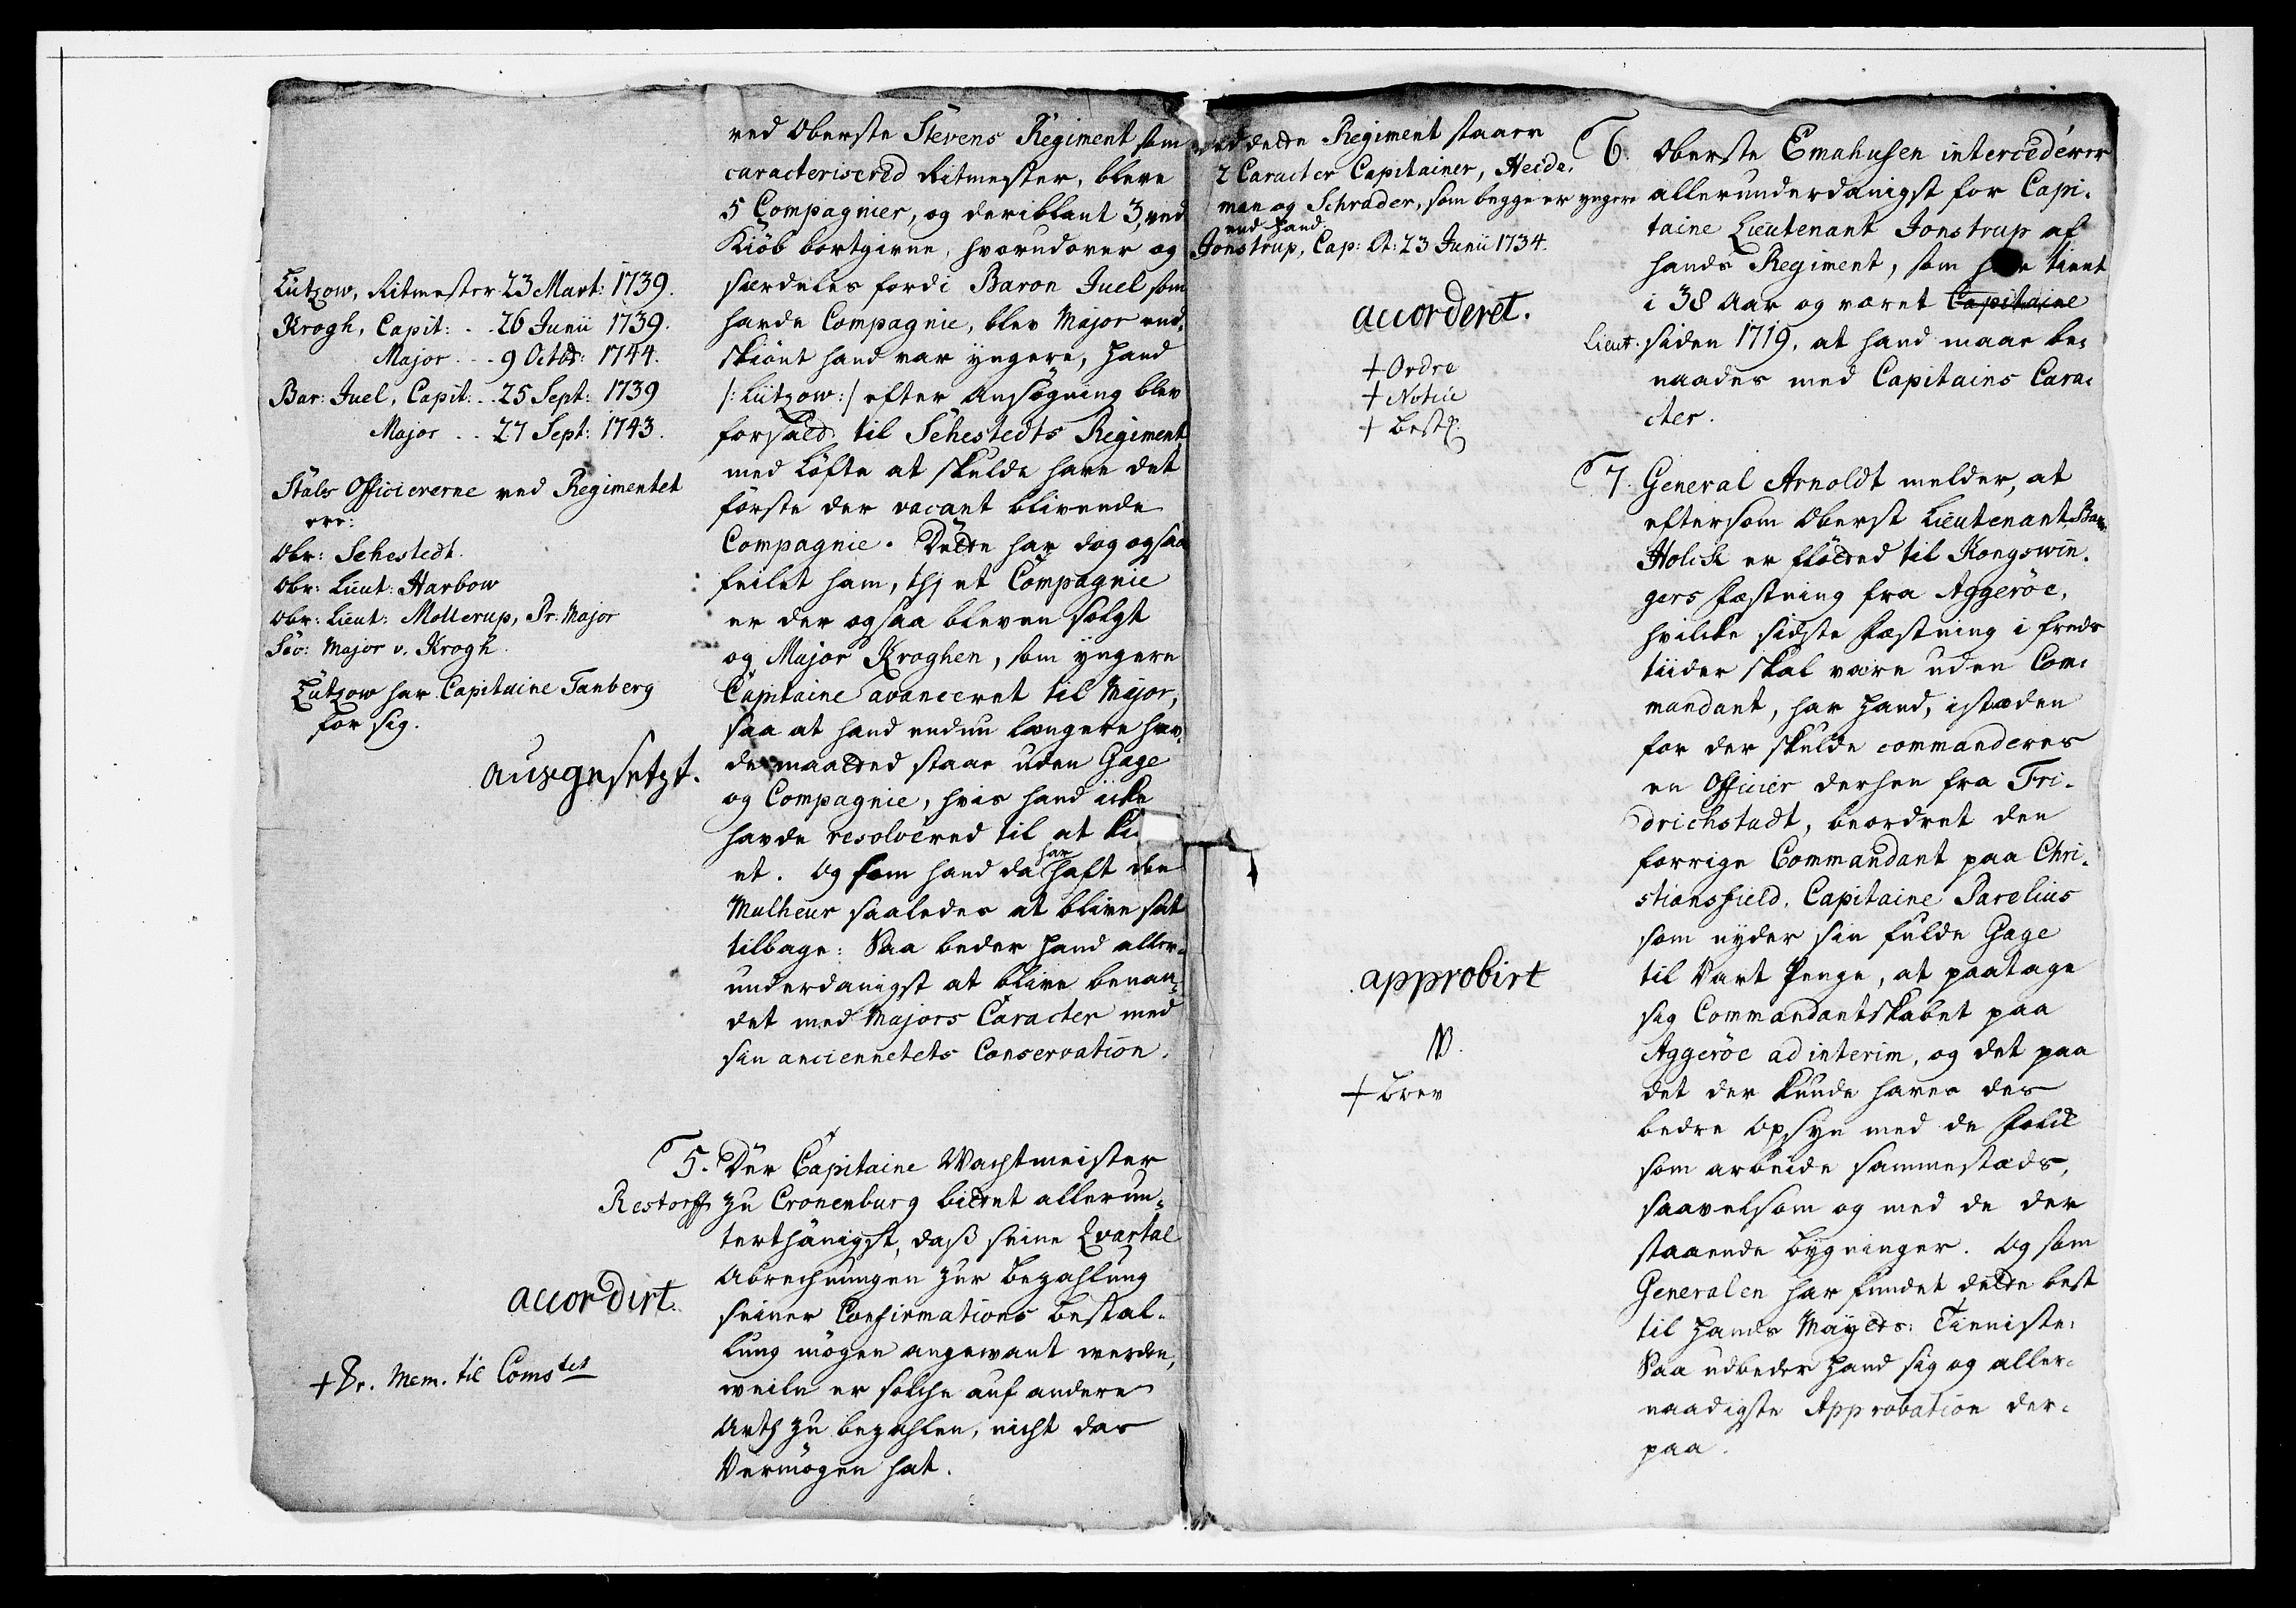 ved Oberste Stevens Regiment som
caracteriserēd Ritmester, bleve
5 Compagnier, og deriblant 3, ved
Kiöb bortgivne, hvorudover og
særdeles fordi Baron Juel som
havde Compagnie, blev Major end,
skiönt hand var yngere, hand
/: Lützow :/ efter Ansögning blev
forsadt til Sehestedts Regiment
med Löfte at skulde have det
förste der vacant blivende
Compagnie. Dette har dog ogsaa
feilet ham, thj et Compagnie
er der ogsaa bleven solgt
og Major Kroghen, som yngere
Capitaine avanceret til Major,
saa at hand endnu længere hav,
de maatted staae uden Gage
og Compagnie, hvis hand icke
havde resolvered til at
et. Og som hand da har haft den
Malheur saaledes at blive sat
tilbage: Saa beder hand aller-
underdanigst at blive benaa,
det med Majors Caracter med
sin anciennetets Conservation.
Lützow, Ritmester 23 Mart: 1739.
Krogh, Capit: . . 26 Junii 1739.
Major . . . 9 Octbr: 1744.
Bar: Juel, Capit: . . 25 Sept: 1739
Major . . 27 Sept: 1743.
Stabs Officiererne ved Regimentet
ere:
Obr: Sehestedt.
Obr: Lieut: Harbow
Obr: Lieut: Mollerup, Pr. Major
Sec: Major v. Krogh.
Lützow har Capitaine Tanberg
for sig.
ausgesetzt.
5. Der Capitaine Wachtmeister
Restorff zu Cronenburg bittet allerun,
terthänigst, daß seine Qvartal
Abrechnungen zur Bezahlung
seiner Confirmations Bestal-
lung mögen angewant werden,
weiln er solche auf andere
Arth zu bezahlen, nicht das
Vermögen hat.
accordirt.
+ Pr. Mem. til Coms<sup>tet</sup>
ved dette Regiment staaer
2 Caracter Capitainer, Heide,
man og Schrader, som begge er yngere
end hand.
Jonstrup, Cap: Lt: 23 Junii 1734.
accorderet.
+ Ordre
+ Notice
+ Best:
6. Oberste Emahusen intercederer
allerunderdanigst for Capi-
taine Lieutenant Jonstrup af
hands Regiment, som tient
i 38 Aar og været Capitaine
Lieut. siden 1719, at hand maae be,
naades med Capitains Cara,
cter.
7. General Arnoldt melder, at
eftersom Oberst Lieutenant Bar:
Holck er flötted til Kongswin-
gers Fæstning fra Aggeröe,
hvilcke sidste Fæstning i freds
tiider skal være uden Com,
mandant, har hand, istæden
for der skulde commanderes
en Officier derhen fra Fri-
drichstadt, beordret den
forrige Commandant paa Chri-
stiansfield, Capitaine Parelius
som nyder sin fulde Gage
til Vart Penge, at paatage
sig Commandantskabet paa
Aggeröe ad interim, og det paa
det der kunde haves des
bedre Opsyn med de Folck
som arbeide sammestæds,
saavelsom og med de der
staaende Bygninger. Og som
Generalen har fundet dette best
til hands Mayts: Tienniste:
Saa udbeder hand sig og aller-
naadigste Approbation der-
paa.
approbirt
NB.
+ Brev